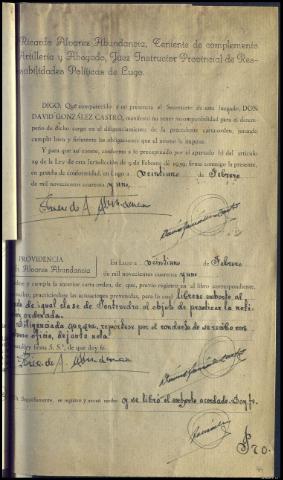 Ricardo Alvarez Abundancia, Teniente de complemento
Artillería y Abogado, Juez Instructor Provincial de Res-
sabilidades Políticas de Lugo.
DIGO: Que compareciendo a mi presencia el Secretario de este Juzgado, DON
DAVID GONZÁLEZ CASTRO, manifestó no tener incompatibilidad para el desem-
peño de dicho cargo en el diligenciamiento de la precedente carta-orden, jurando
cumplir bien y fielmente las obligaciones que el mismo le impone.
Y para que así conste, conforme a lo preceptuado por el apartado b) del artículo
29 de la Ley de esta Jurisdicción de 9 de Febrero de 1939, firma conmigo la presente,
en prueba de conformidad, en Lugo a veintiuno de Febrero
de mil novecientos cuarenta y uno.
PROVIDENCIA
Alvarez Abundancia
En Lugo a veintiuno de Febrero
de mil novecientos cuarenta y uno
y cumpla la anterior carta orden, de que, previo registro en el libro correspondiente,
practicándose las actuaciones prevenidas, para lo cual líbrese exhorto al
de igual clase de Pontevedra al objeto de practicar la noti-
ordenada.
Diligenciada que sea, repórtese por el conducto de su recibo con
oficio, dejando nota
S. S.ª, de que doy fe.
Seguidamente, se registra y acusa recibo y se libró el exhorto acordado. Doy fe.